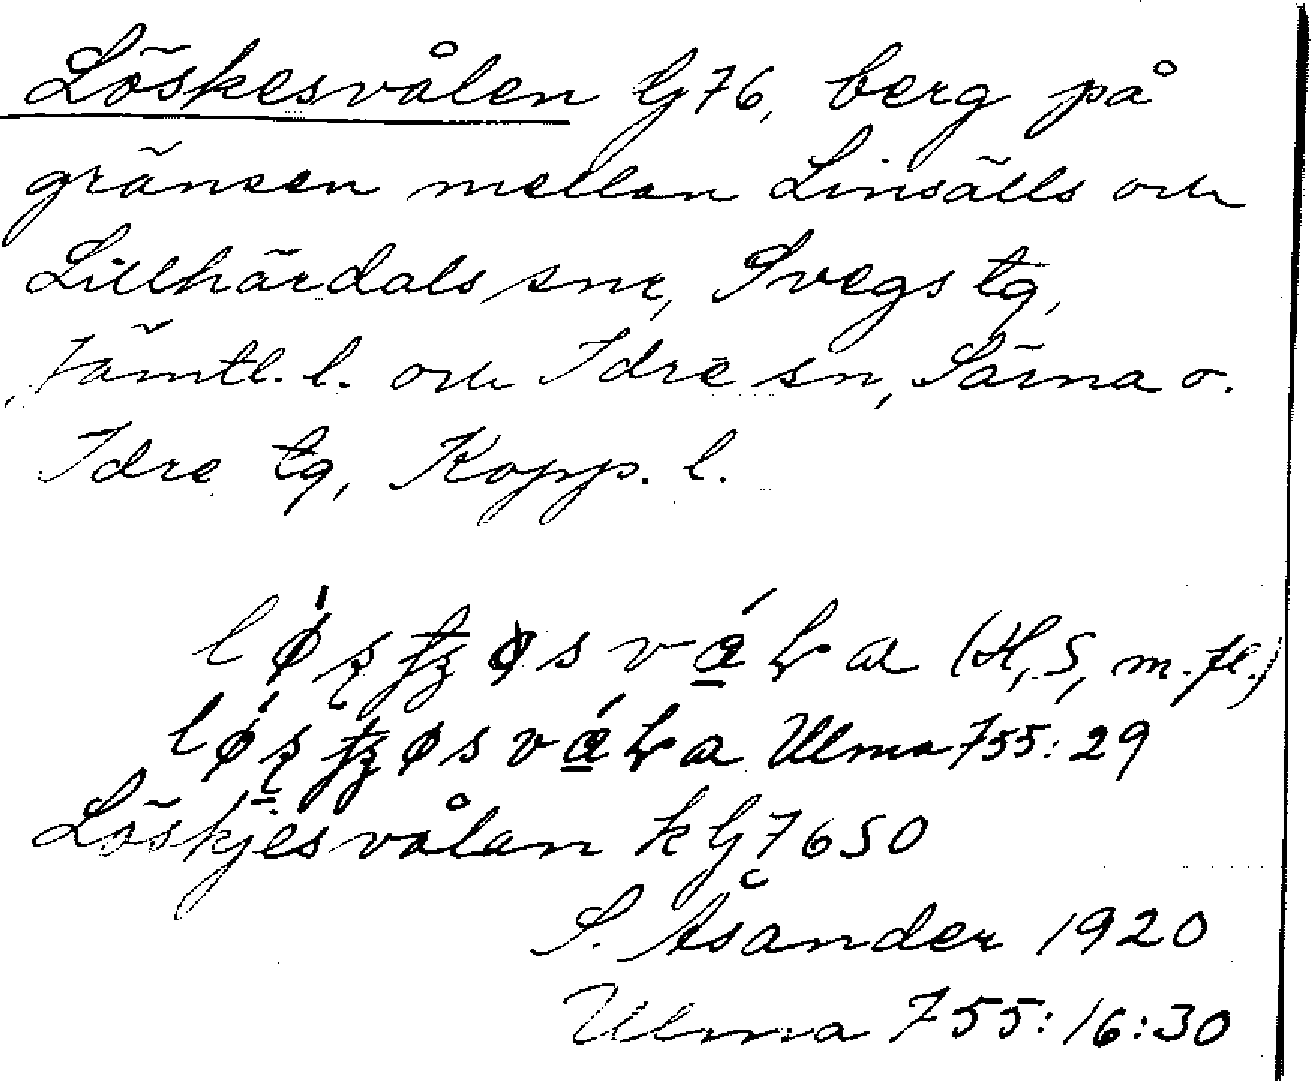 Löskesvålen G76, berg på
gränsen mellan Linsälls och
Lillhärdals snr, Svegs tg,
Jämtl. l. och Idre sn, Särna o.
Idre tg, Kopp. l.
(H, S, m. fl.)
Ulma 755:29
Löskjesvålan k G7650
S. Åsander 1920
Ulma 755:16:30